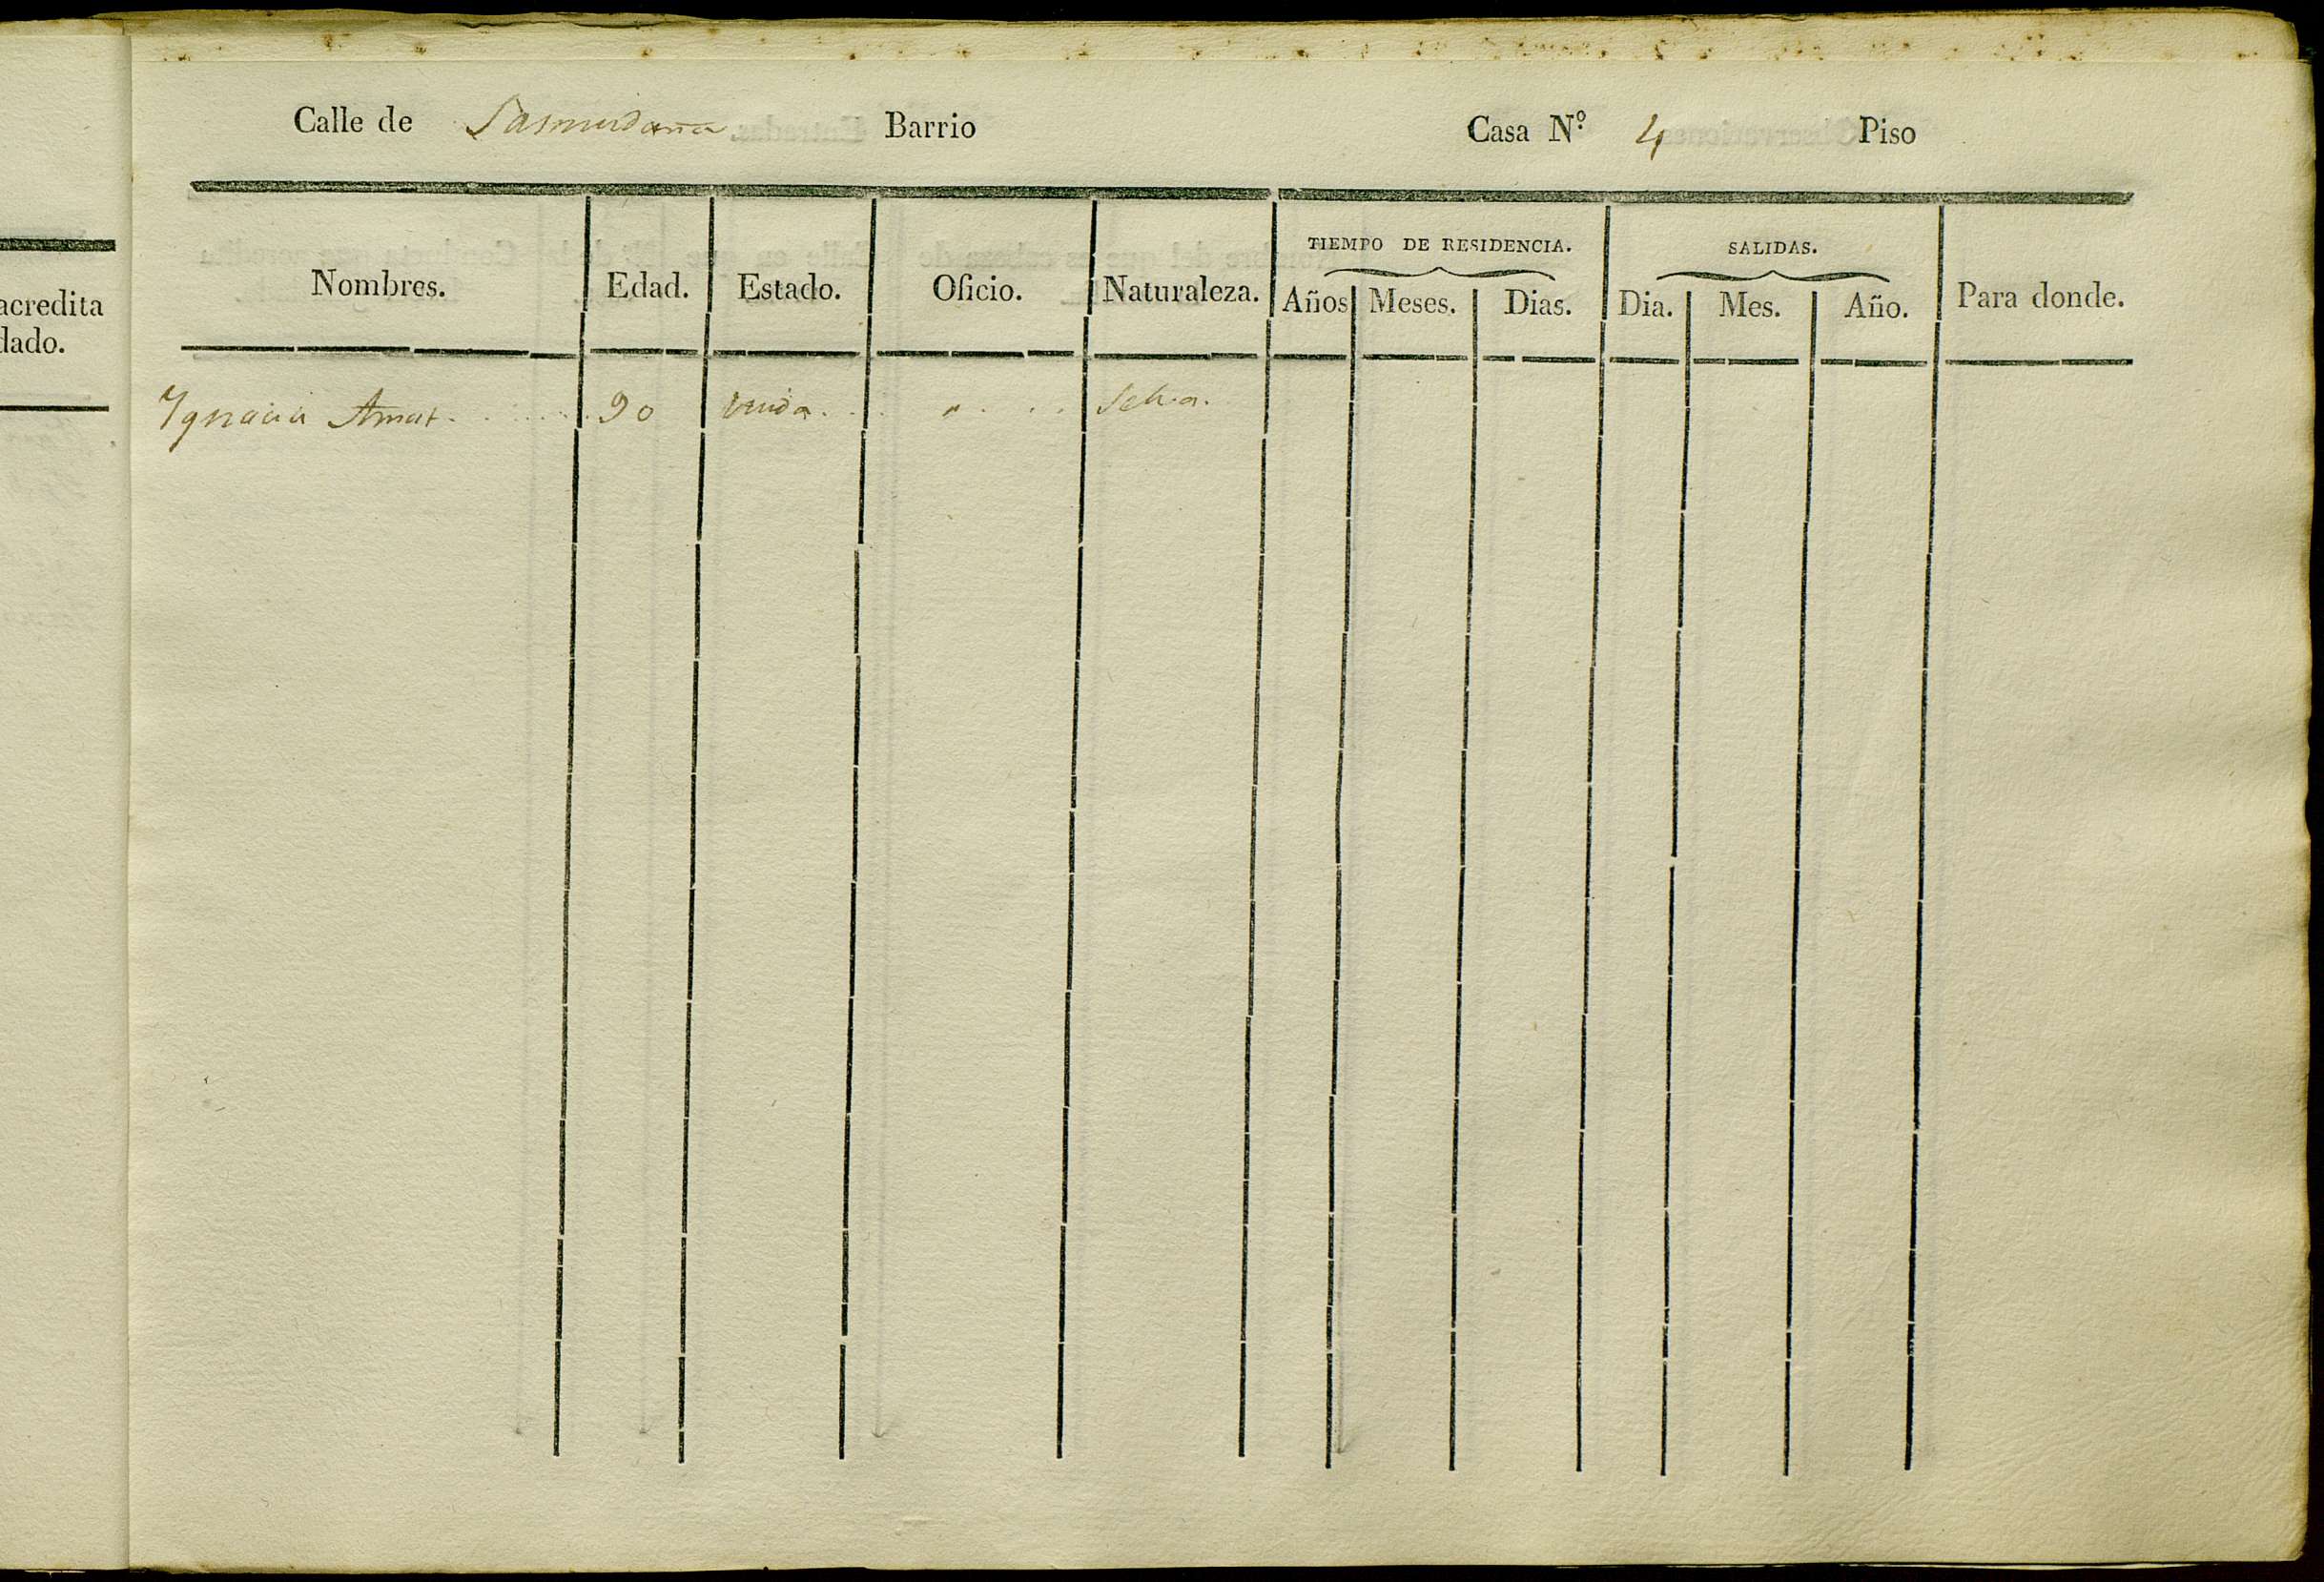 Calle de Barrio Casa N.º 4 Piso
acredita
dado.
TIEMPO DE RESIDENCIA. SALIDAS.
Nombres. Edad. Estado. Oficio. Naturaleza. Años Meses. Dias. Dia. Mes. Año. Para donde.
Ygnacia Amat. 90 viuda. " Selva.